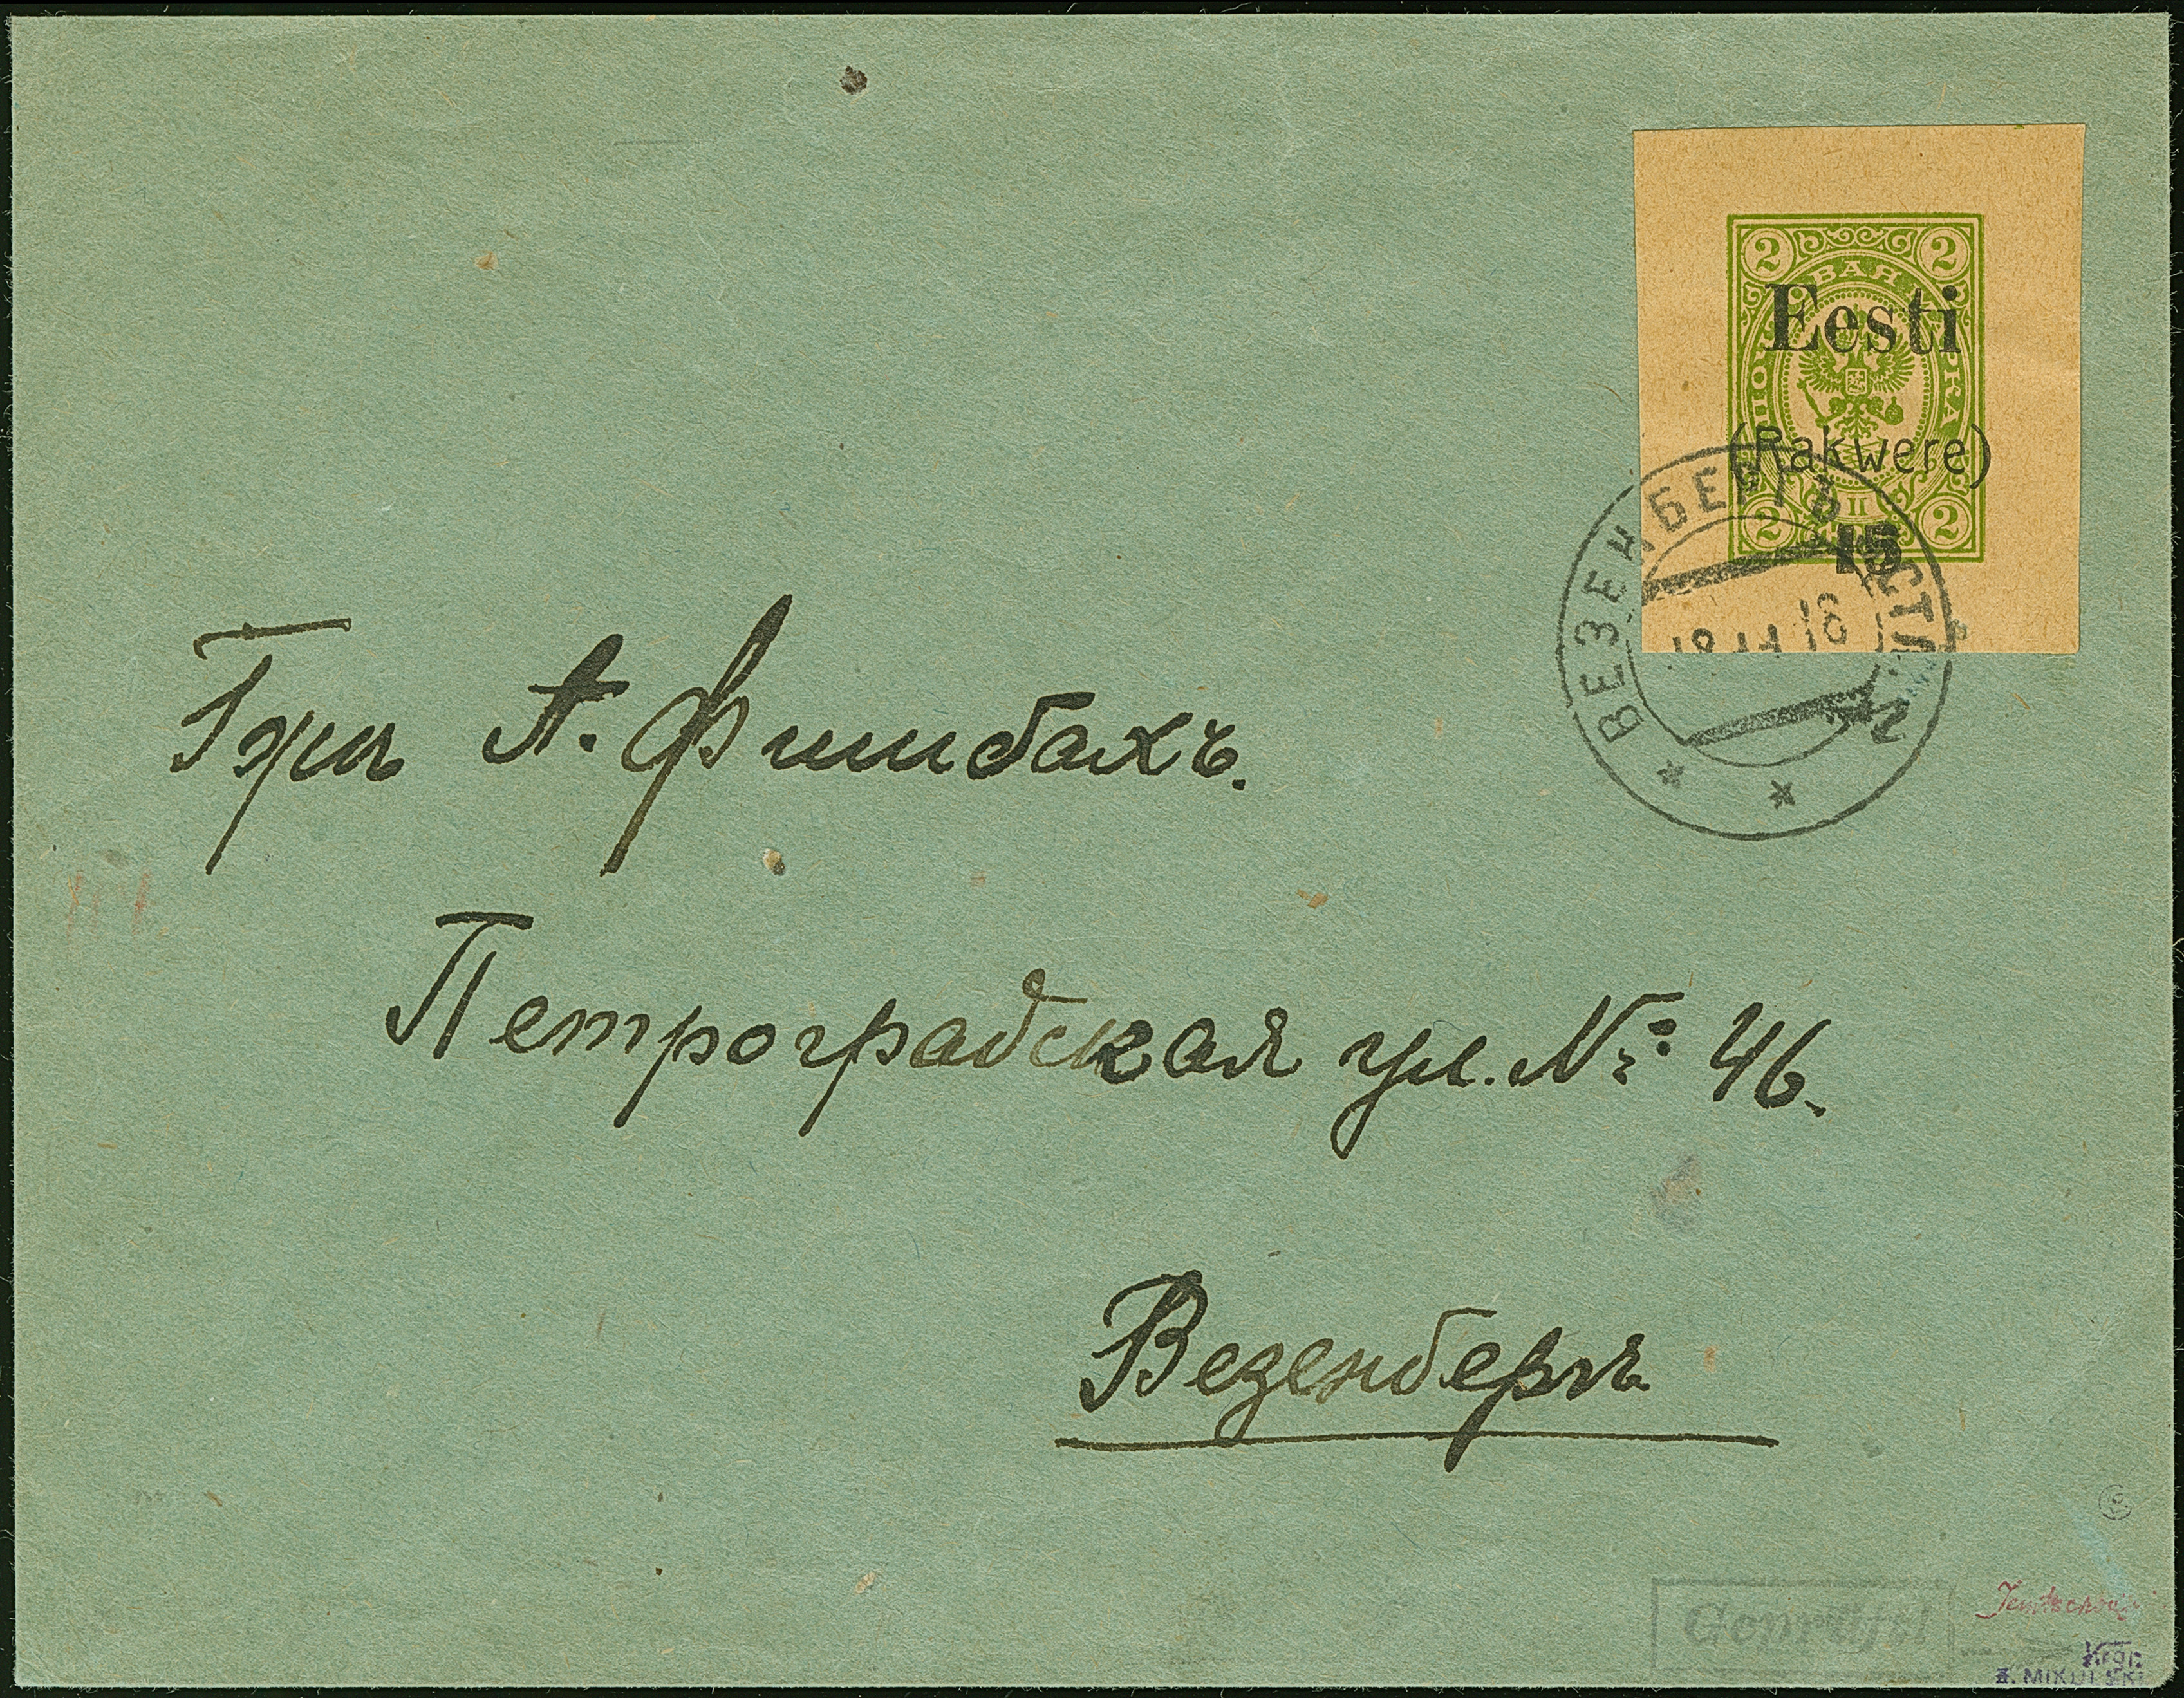 2 2
Eesti
(Rakwere)
2 2
15
ВЕЗЕНБЕРГЪ ЭСТЛ.
18 11 18
Грж А. Фишбахъ.
Петроградская ул. №: 46.
Везенбергъ
Geprüft
B. MIKULSKI